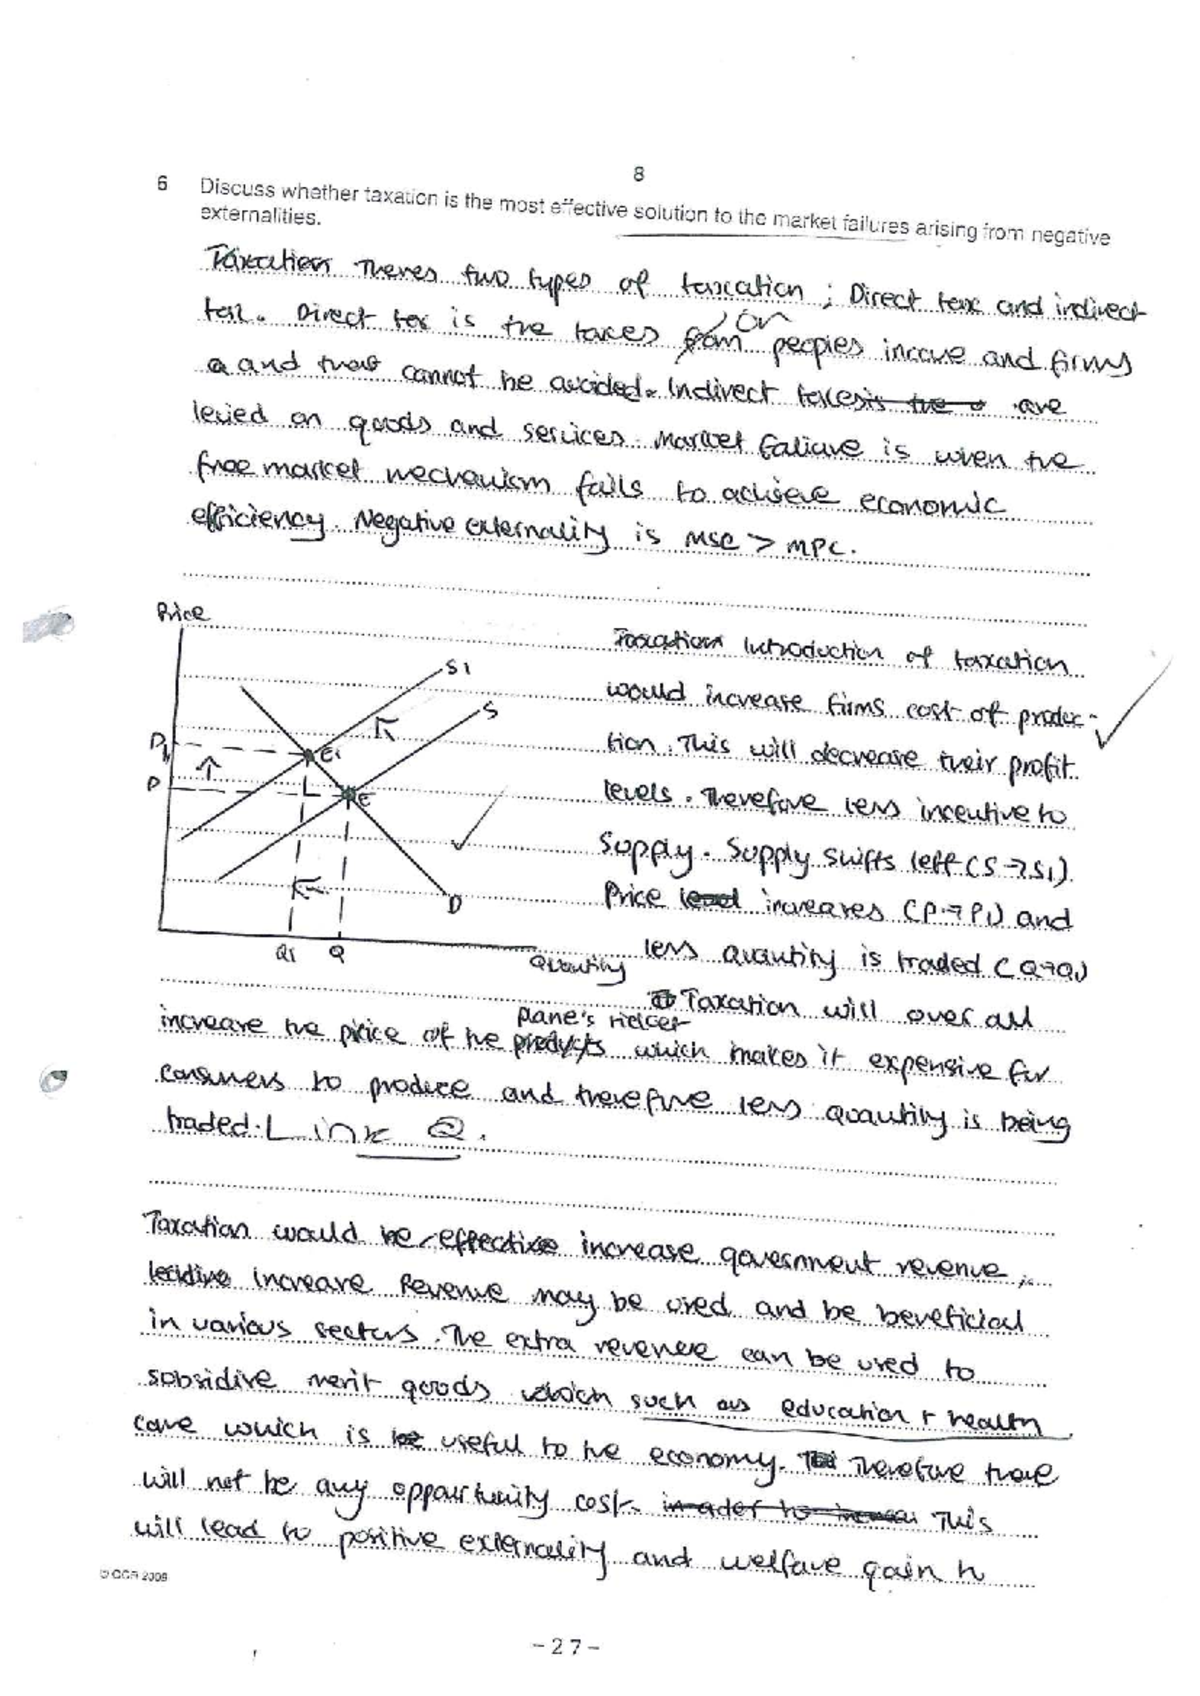 8
6 Discuss whether taxation is the most effective solution to the market failures arising from negative
externalities.
Taxation Theres two types of taxcation ; Direct tax and indirect
tax. Direct tax is the taxes from on peoples income and firms
a and that cannot be avoided. Indirect taxes is the are
levied on goods and services. Market faliure is when the
free market mechanism fails to achieve economic
efficiency. Negative externality is MSC > MPC.
Price
Taxation Introduction of taxation
would increase firms cost of produc-
tion. This will decrease their profit
levels. Therefore less incentive to
Supply. Supply shifts left (S → S1).
Price lead increases (P → P1) and
less quantity is traded (Q→Q1)
S1
S
P1
E1
P
E
D
Q1 Q
Quantity
Taxation will over all
plane's ticket
increase the price of the products which makes it expensive for
consumers to produce and therefore less quantity is being
traded. Link Q.
Taxation would be effective increase government revenue,
leading increase Revenue may be used and be beneficial
in various sectors. The extra revenue can be used to
sobsidive merit goods which such as education + health
care which is useful to the economy. Therefore there
will not be any oppourtunity cost. in order to This
will lead to positive externality and welfare gain to
© OCR 2009
-27-